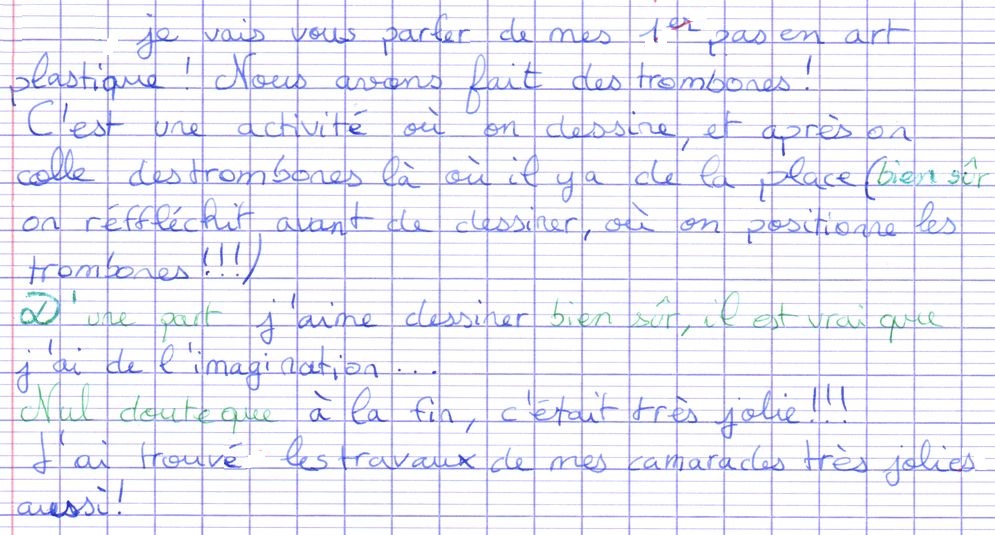 je vais vous parler de mes 1er pas en art
plastique ! Nous avons fait des trombones !
C'est une activité où on dessine, et après on
colle des trombones là où il y a de la place (bien sûr
on réffléchit avant de dessiner, où on positionne les
trombones !!!)
D'une part j'aime dessiner bien sûr, il est vrai que
j'ai de l'imagination...
Nul doute que à la fin, c'était très jolie !!!
J'ai trouvé les travaux de mes camarades très jolies
aussi !